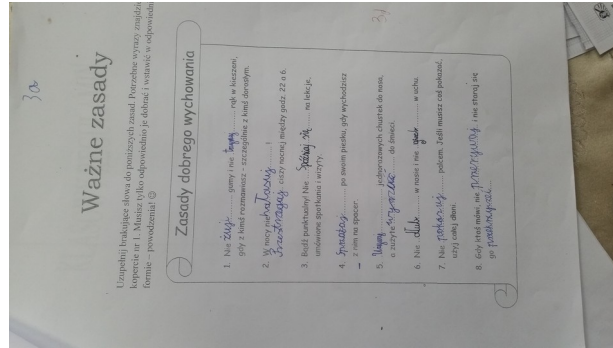 3a
Ważne zasady
Uzupełnij brakujące słowa do poniższych zasad. Potrzebne wyrazy znajdzi
kopercie nr 1. Musisz tylko odpowiednio je dobrać i wstawić w odpowiedni
formie – powodzenia! ☺
Zasady dobrego wychowania
1. Nie żuj gumy i nie trzymaj rąk w kieszeni,
gdy z kimś rozmawiasz - szczególnie z kimś dorosłym.
2. W nocy nie hałasuj !
Przestrzegaj ciszy nocnej między godz. 22 a 6.
3. Bądź punktualny! Nie spóźniaj się na lekcje,
umówione spotkania i wizyty.
4. Sprzątaj po swoim piesku, gdy wychodzisz
z nim na spacer
5. Używaj jednorazowych chustek do nosa,
a zużyte wyrzucaj do śmieci.
6. Nie dłub w nosie i nie w uchu.
7. Nie pokazuj palcem. Jeśli musisz coś pokazać,
użyj całej dłoni.
8. Gdy ktoś mówi, nie przerywaj i nie staraj się
go